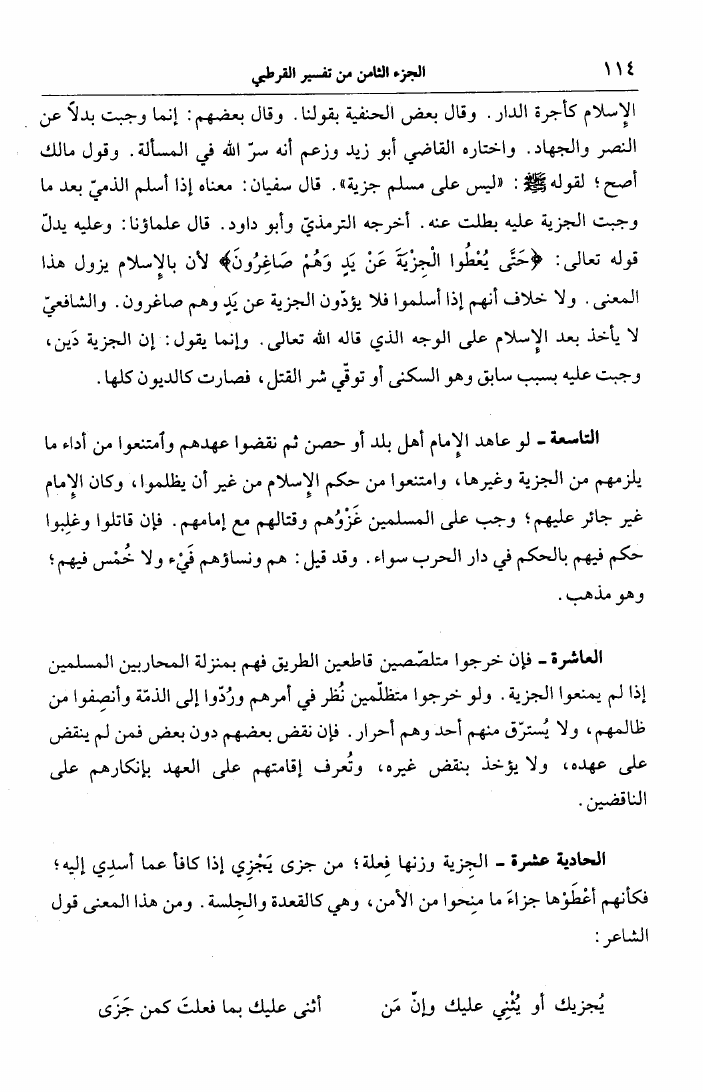 ١١٤
الجزء الثامن من تفسير القرطبي
الإسلام كأجرة الدار. وقال بعض الحنفية بقولنا. وقال بعضهم: إنما وجبت بدلاً عن
النصر والجهاد. واختاره القاضي أبو زيد وزعم أنه سرّ الله في المسألة. وقول مالك
أصح؛ لقوله ﷺ: «ليس على مسلم جزية». قال سفيان: معناه إذا أسلم الذميّ بعد ما
وجبت الجزية عليه بطلت عنه. أخرجه الترمذيّ وأبو داود. قال علماؤنا: وعليه يدلّ
قوله تعالى: ﴿حَتَّى يُعْطُوا الْجِزْيَةَ عَنْ يَدٍ وَهُمْ صَاغِرُونَ﴾ لأن بالإسلام يزول هذا
المعنى. ولا خلاف أنهم إذا أسلموا فلا يؤدّون الجزية عن يَدٍ وهم صاغرون. والشافعيّ
لا يأخذ بعد الإسلام على الوجه الذي قاله الله تعالى. وإنما يقول: إن الجزية دَين،
وجبت عليه بسبب سابق وهو السكنى أو توقّي شر القتل، فصارت كالديون كلها.
التاسعة ـ لو عاهد الإمام أهل بلد أو حصن ثم نقضوا عهدهم وٱمتنعوا من أداء ما
يلزمهم من الجزية وغيرها، وامتنعوا من حكم الإسلام من غير أن يظلموا، وكان الإمام
غير جائر عليهم؛ وجب على المسلمين غَزْوُهم وقتالهم مع إمامهم. فإن قاتلوا وغلِبوا
حكم فيهم بالحكم في دار الحرب سواء. وقد قيل: هم ونساؤهم فَيْء ولا خُمْس فيهم؛
وهو مذهب.
العاشرة ـ فإن خرجوا متلصّصين قاطعين الطريق فهم بمنزلة المحاربين المسلمين
إذا لم يمنعوا الجزية. ولو خرجوا متظلّمين نُظر في أمرهم ورُدّوا إلى الذمّة وأنصِفوا من
ظالمهم، ولا يُسترّق منهم أحد وهم أحرار. فإن نقض بعضهم دون بعض فمن لم ينقض
على عهده، ولا يؤخذ بنقض غيره، وتُعرف إقامتهم على العهد بإنكارهم على
الناقضين.
الحادية عشرة ـ الجِزية وزنها فِعلة؛ من جزى يَجْزِي إذا كافأ عما أسدِي إليه؛
فكأنهم أعْطَوْها جزاءَ ما مِنِحوا من الأمن، وهي كالقعدة والجِلسة. ومن هذا المعنى قول
الشاعر:
يُجزيك أو يُثْنِي عليك وإنّ مَن    أثنى عليك بما فعلتَ كمن جَزَى